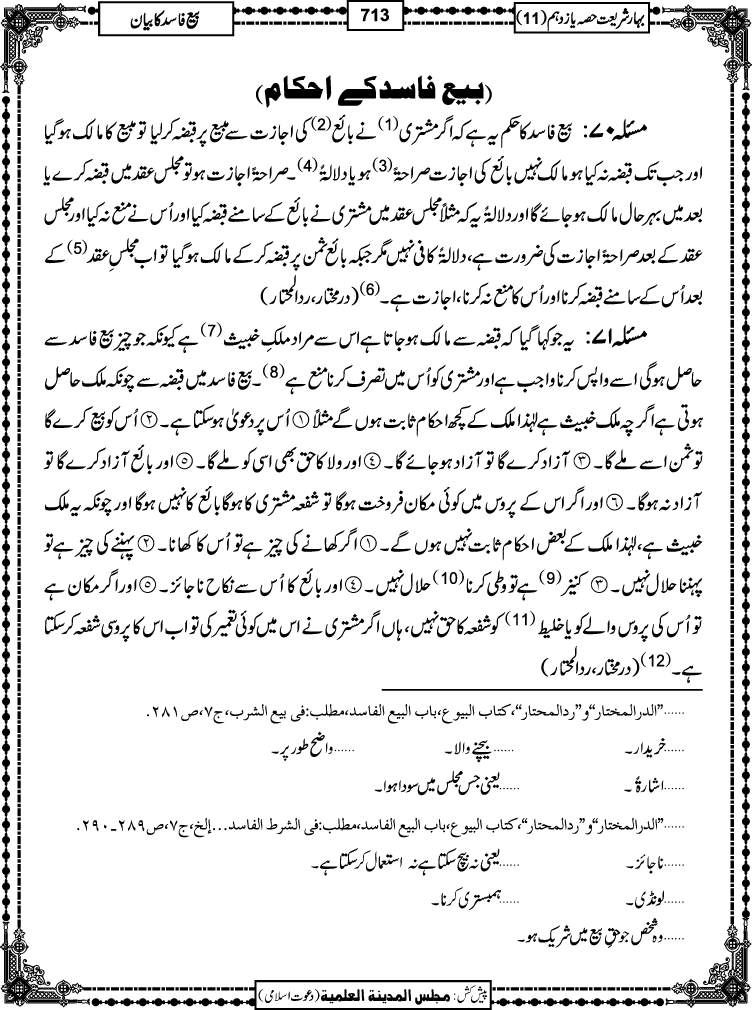 بہارِ شریعت حصہ یازدہم (11)
713
بیع فاسد کا بیان
(بیع فاسد کے احکام)
مسئلہ ۷۰: بیع فاسد کا حکم یہ ہے کہ اگر مشتری (1) نے بائع (2) کی اجازت سے مبیع پر قبضہ کرلیا تو مبیع کا مالک ہوگیا
اور جب تک قبضہ نہ کیا ہو مالک نہیں بائع کی اجازت صراحۃً (3) ہو یا دلالۃً (4)۔ صراحۃً اجازت ہو تو مجلس عقد میں قبضہ کرے یا
بعد میں بہر حال مالک ہوجائے گا اور دلالۃً یہ کہ مثلاً مجلس عقد میں مشتری نے بائع کے سامنے قبضہ کیا اور اُس نے منع نہ کیا اور مجلس
عقد کے بعد صراحۃً اجازت کی ضرورت ہے، دلالۃً کافی نہیں مگر جبکہ بائع ثمن پر قبضہ کرکے مالک ہوگیا تو اب مجلسِ عقد (5) کے
بعد اُس کے سامنے قبضہ کرنا اور اُس کا منع نہ کرنا، اجازت ہے۔ (6) (درمختار، ردالمحتار)
مسئلہ ۷۱: یہ جو کہا گیا کہ قبضہ سے مالک ہوجاتا ہے اس سے مراد ملکِ خبیث (7) ہے کیونکہ جو چیز بیع فاسد سے
حاصل ہوگی اسے واپس کرنا واجب ہے اور مشتری کو اُس میں تصرف کرنا منع ہے (8)۔ بیع فاسد میں قبضہ سے چونکہ ملک حاصل
ہوتی ہے اگرچہ ملک خبیث ہے لہٰذا ملک کے کچھ احکام ثابت ہوں گے مثلاً ① اُس پر دعویٰ ہوسکتا ہے۔ ② اُس کو بیع کرے گا
تو ثمن اسے ملے گا۔ ③ آزاد کرے گا تو آزاد ہوجائے گا۔ ④ اور ولا کا حق بھی اسی کو ملے گا۔ ⑤ اور بائع آزاد کرے گا تو
آزاد نہ ہوگا۔ ⑥ اور اگر اس کے پروس میں کوئی مکان فروخت ہوگا تو شفعہ مشتری کا ہوگا بائع کا نہیں ہوگا اور چونکہ یہ ملک
خبیث ہے، لہٰذا ملک کے بعض احکام ثابت نہیں ہوں گے۔ ① اگر کھانے کی چیز ہے تو اُس کا کھانا۔ ② پہننے کی چیز ہے تو
پہننا حلال نہیں۔ ③ کنیز (9) ہے تو وطی کرنا (10) حلال نہیں۔ ④ اور بائع کا اُس سے نکاح ناجائز۔ ⑤ اور اگر مکان ہے
تو اُس کی پروس والے کو یا خلیط (11) کو شفعہ کا حق نہیں، ہاں اگر مشتری نے اس میں کوئی تعمیر کی تو اب اس کا پروسی شفعہ کرسکتا
ہے۔ (12) (درمختار، ردالمحتار)
......”الدرالمختار“و”ردالمحتار“، کتاب البیوع، باب البیع الفاسد، مطلب: فی بیع الشرب، ج۷، ص۲۸۱.
......خریدار۔ ......بیچنے والا۔ ......واضح طور پر۔
......اشارۃً۔ ......یعنی جس مجلس میں سودا ہوا۔
......”الدرالمختار“و”ردالمحتار“، کتاب البیوع، باب البیع الفاسد، مطلب: فی الشرط الفاسد...إلخ، ج۷، ص۲۸۹۔۲۹۰.
......ناجائز۔ ......یعنی نہ بیچ سکتا ہے نہ استعمال کرسکتا ہے۔
......لونڈی۔ ......ہمبستری کرنا۔
......وہ شخص جو حقِ بیع میں شریک ہو۔
پیش کش: مجلس المدینۃ العلمیۃ (دعوت اسلامی)